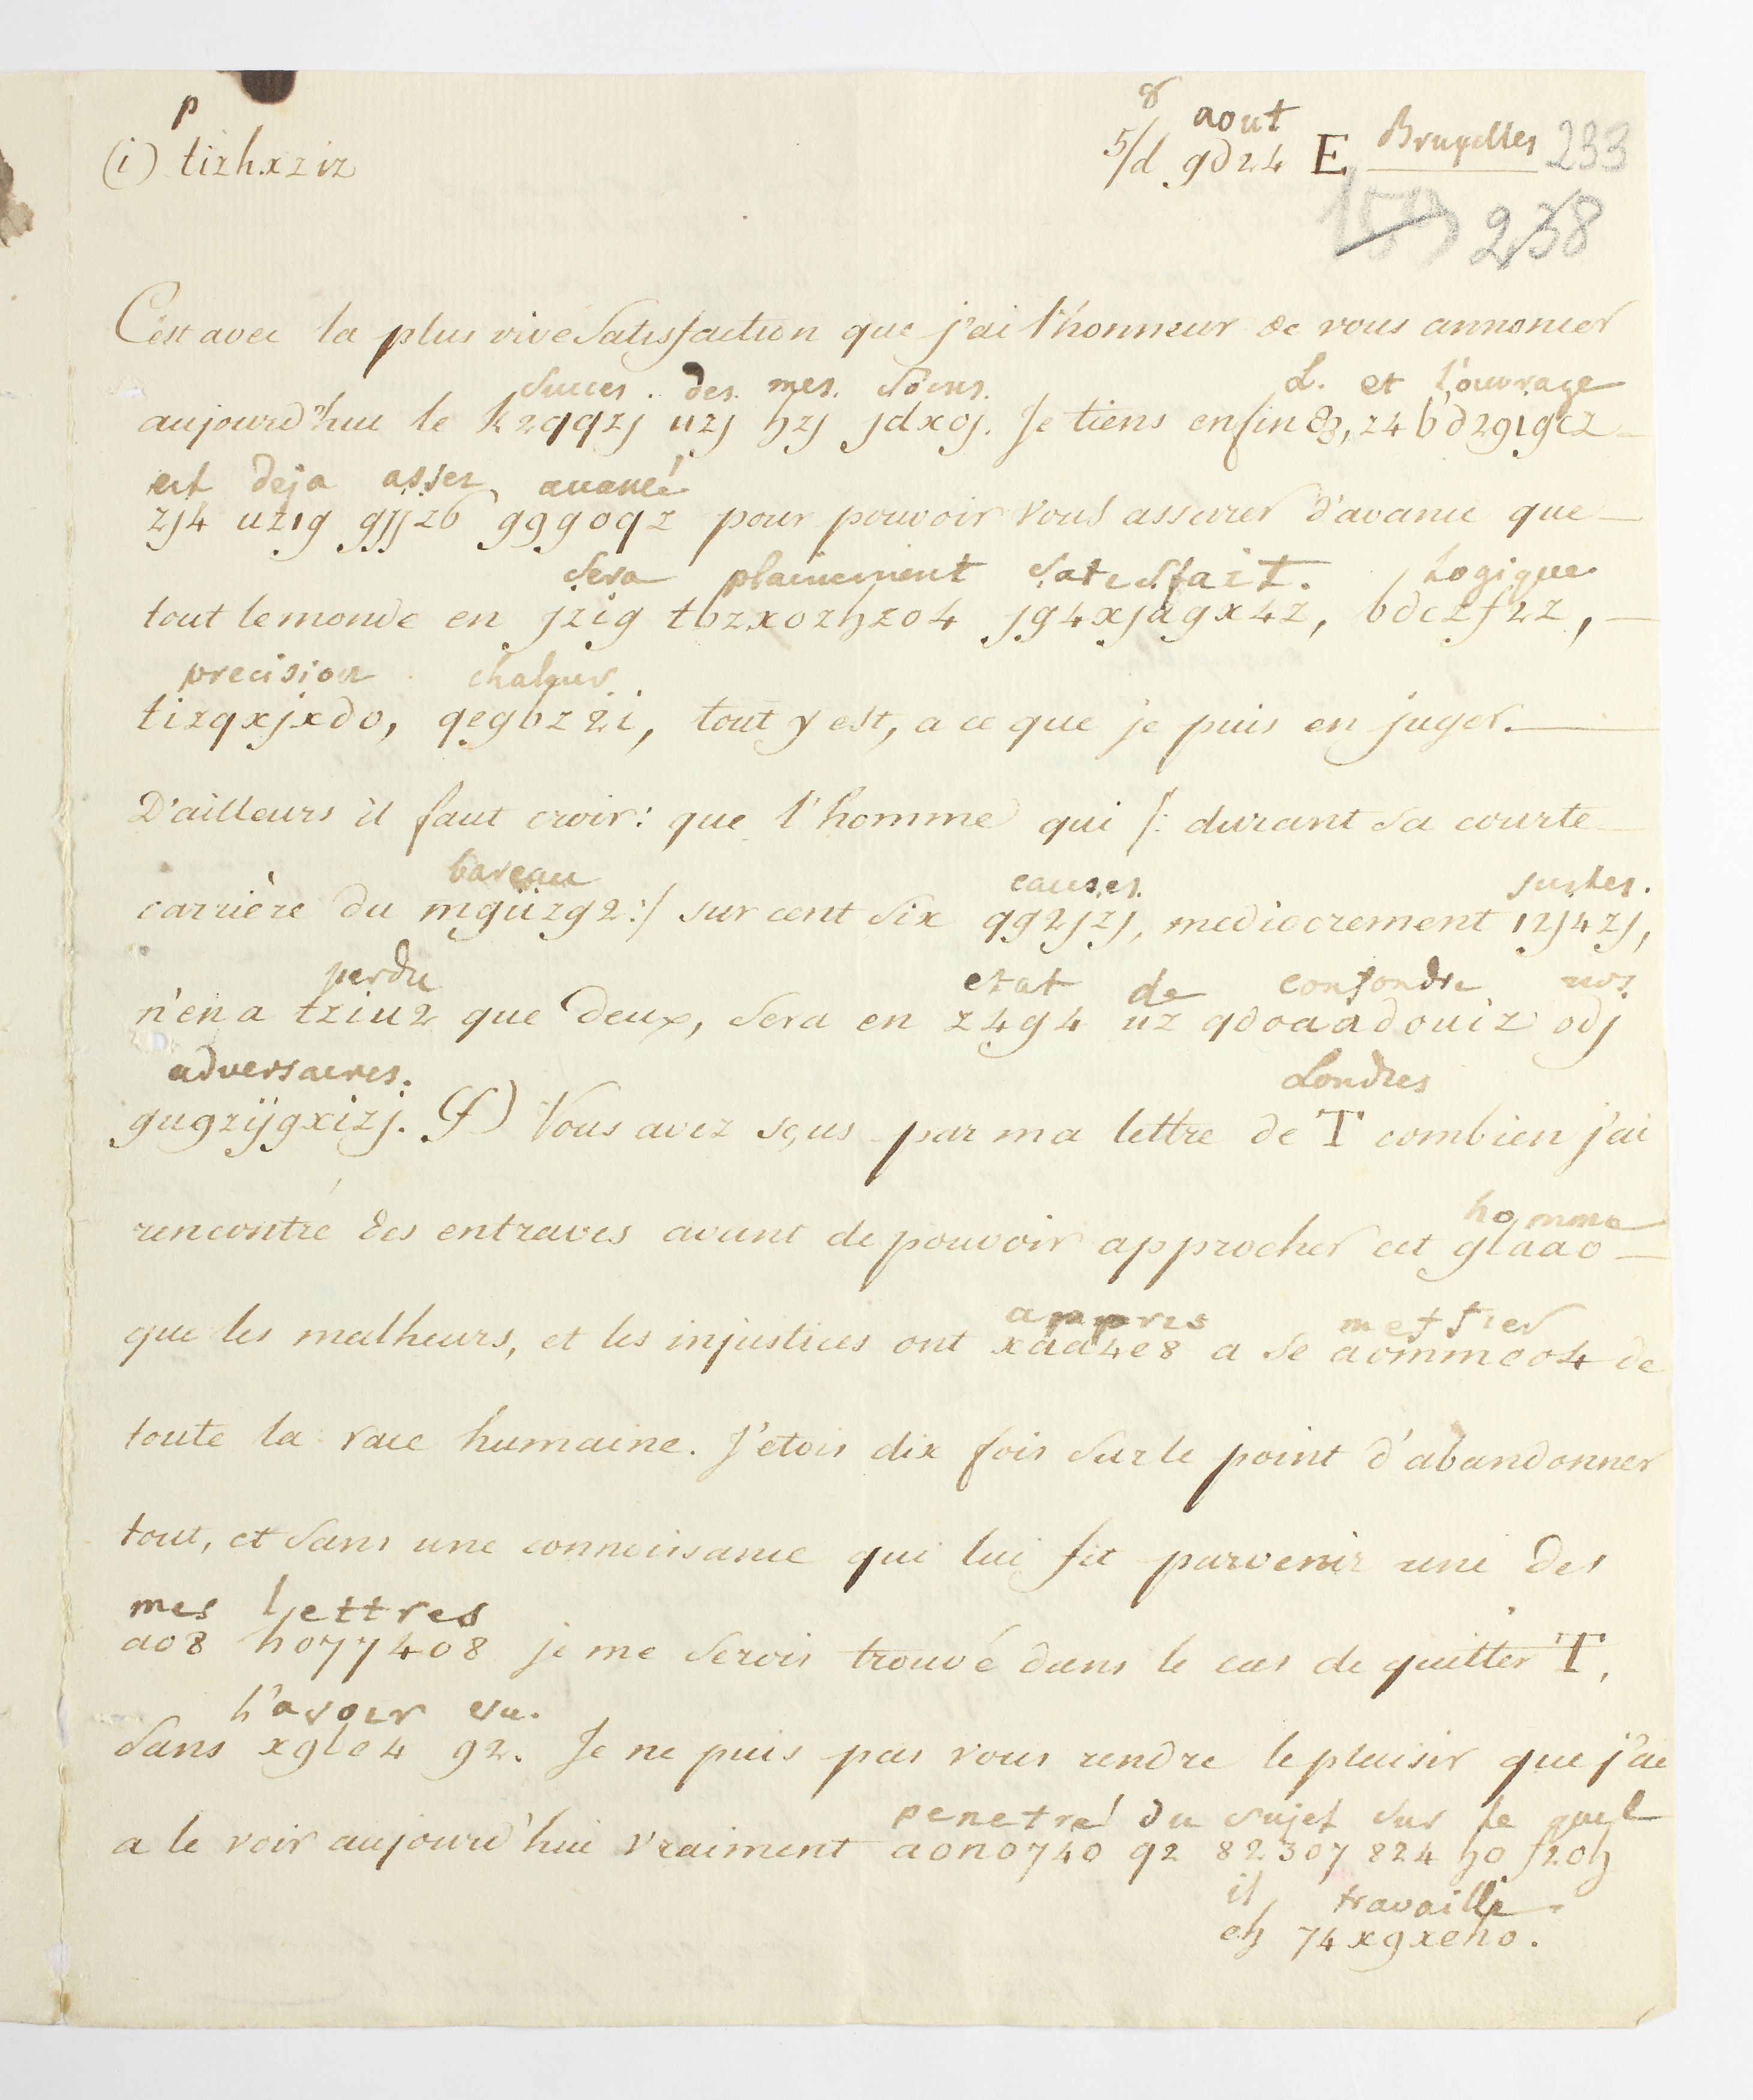 p
(i) tizhxziz
8 aout Bruxelles 233
5/d gd24 E
238
C'est avec la plus vive satisfaction que j'ai l'honneur de vous annoncer
succes des mes soins. L. et l'ouvrage
aujourd'hui le k2qqzj uzj hzj jdxoj. Je tiens enfin 83, z4 b'd2gigcz
est deja assez avancé
zj4 uz1g gjjzb gggoqz pour pouvoir vous assurer d'avance que
sera plainement satisfait. Logique
tout le monde en jzig tbzxozhzo4 jg4xjagx4z, bdczf2z,
precision chaleur
tizqxjxdo, qegbz2i, tout y est, a ce que je puis en juger.
D'ailleurs il faut croir: que l'homme qui /: durant sa courte
bareau causes. justes.
carrière du mgüzg2 :/ sur cent six qg2jzj, mediocrement 12j4zj,
perdu etat de confondre nos
n'en a tziu2 que deux, sera en z4g4 uz qdoaadouiz odj
adversaires. Londres
gugzijgxizj. (f) Vous avez sçus par ma lettre de T combien j'ai
homme
rencontré des entraves avant de pouvoir approcher cet glaao
appris meffier
que les malheurs, et les injustices ont xaa4e8 a se aommeo4 de
toute la race humaine. J'etois dix fois sur le point d'abandonner
tout, et sans une connoissance qui lui fit parvenir une des
mes lettres
ao8 ho77408 je me serois trouvé dans le cas de quitter T,
l'avoir vu.
sans xgle4 g2. Je ne puis pas vous rendre le plaisir que j'ai
penetré du sujet sur le quel
a le voir aujourd'hui vraiment aono740 q2 82307 824 ho f2oh
il travaille.
eh 74xgxeho.